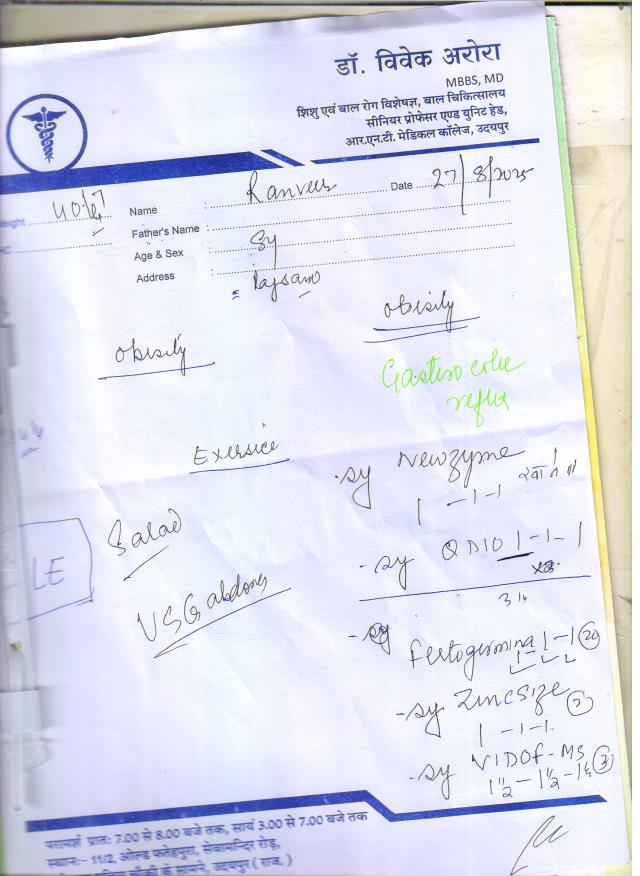 डॉ. विवेक अरोरा
MBBS, MD
शिशु एवं बाल रोग विशेषज्ञ, बाल चिकित्सालय
सीनियर प्रोफेसर एण्ड युनिट हेड,
आर.एन.टी. मेडिकल कॉलेज, उदयपुर
Name : Ranveer Date 27/8/2025
Father's Name :
Age & Sex : 8y
Address :
obisity
obisity
Gastero colic
reflux
Exersice
Salad
USG abdomen
LE
sy Newzyme
1 - 1 - 1
sy QDIO 1 - 1 - 1
sy
1 - 1 20
sy Zincsize
1 - 1 - 1
sy VIDOF-MS
1½ - 1½ - 1½ 3
परामर्श प्रातः 7.00 से 8.00 बजे तक, सायं 3.00 से 7.00 बजे तक
स्थान:- 11/2, ओल्ड फतेहपुरा, सेवामन्दिर रोड़,
के सामने, उदयपुर ( राज. )